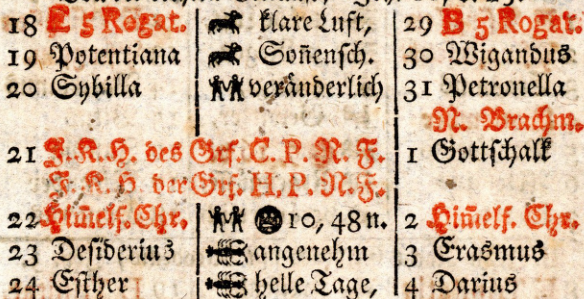 18 E 5 Rogat. klare Luft, 29 B 5 Rogat.
19 Potentiana Soñensch. 30 Wigandus
20 Sybilla veränderlich 31 Petronella
N. Brachm.
21 F. K. H. des Grf. C. P. N. F. 1 Gottschalk
F. K. H. der Grf. H. P. N. F.
22 Him̃elf. Chr. 10, 48 n. 2 Him̃elf. Chr.
23 Desiderius angenehm 3 Erasmus
24 Esther helle Tage, 4 Darius